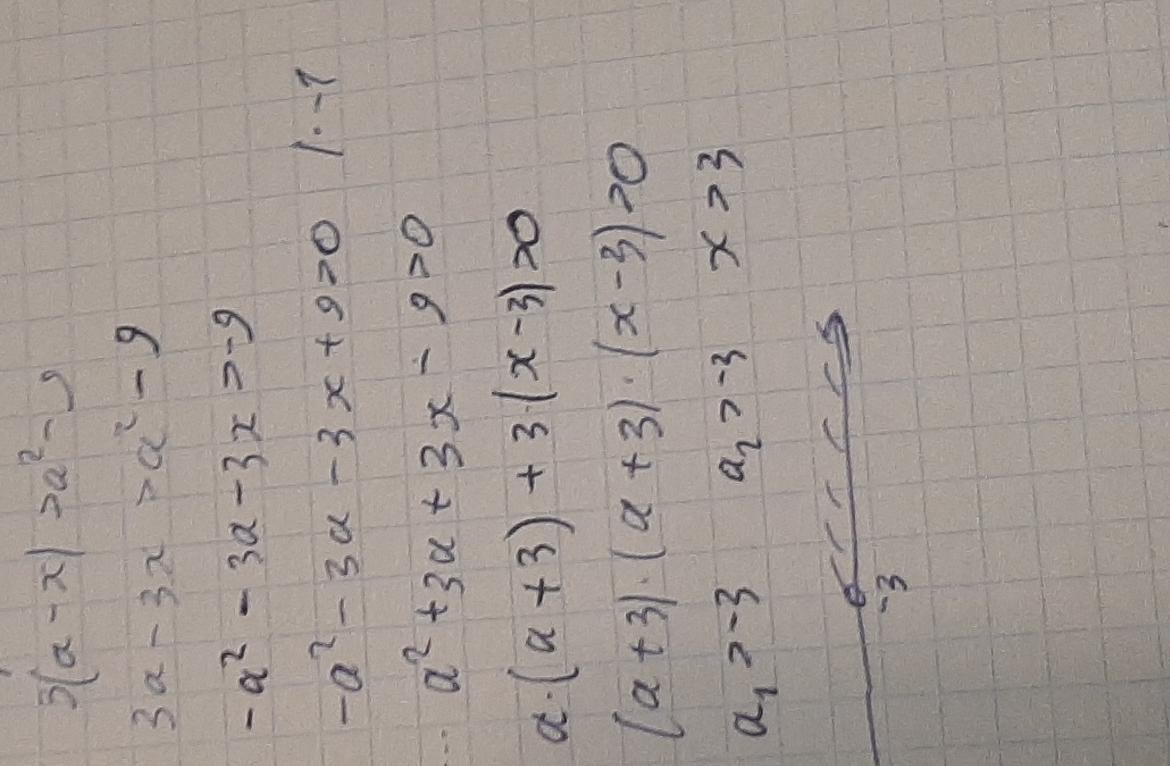 3(a-x)>a²-9
3a-3x>a²-9
-a²-3a-3x>-9
-a²-3a-3x+9>0 /·-1
a²+3a+3x-9>0
a·(a+3)+3·(x-3)>0
(a+3)·(a+3)·(x-3)>0
a₁>-3 a₂>-3 x>3
-3